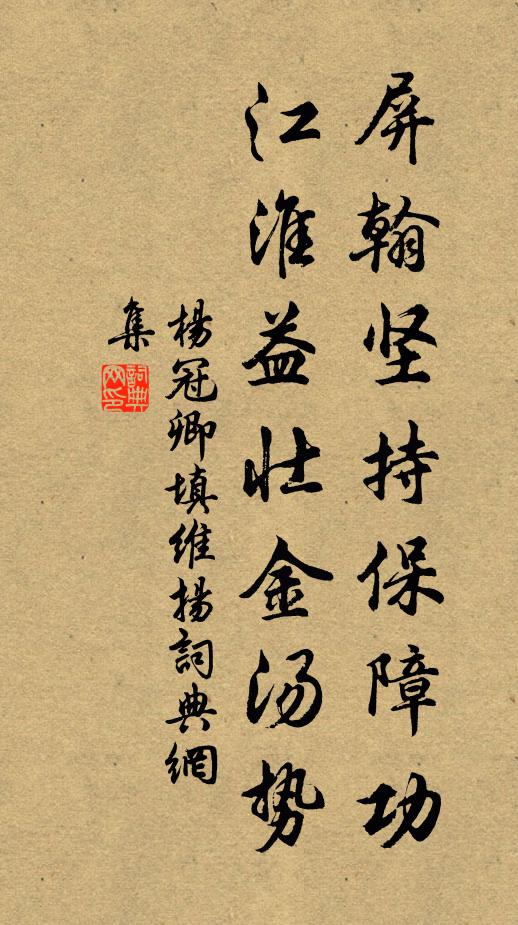 屏翰坚持保障功
江淮益壮金汤势
楊冠卿填维揚詞典網
集
詞典
网印